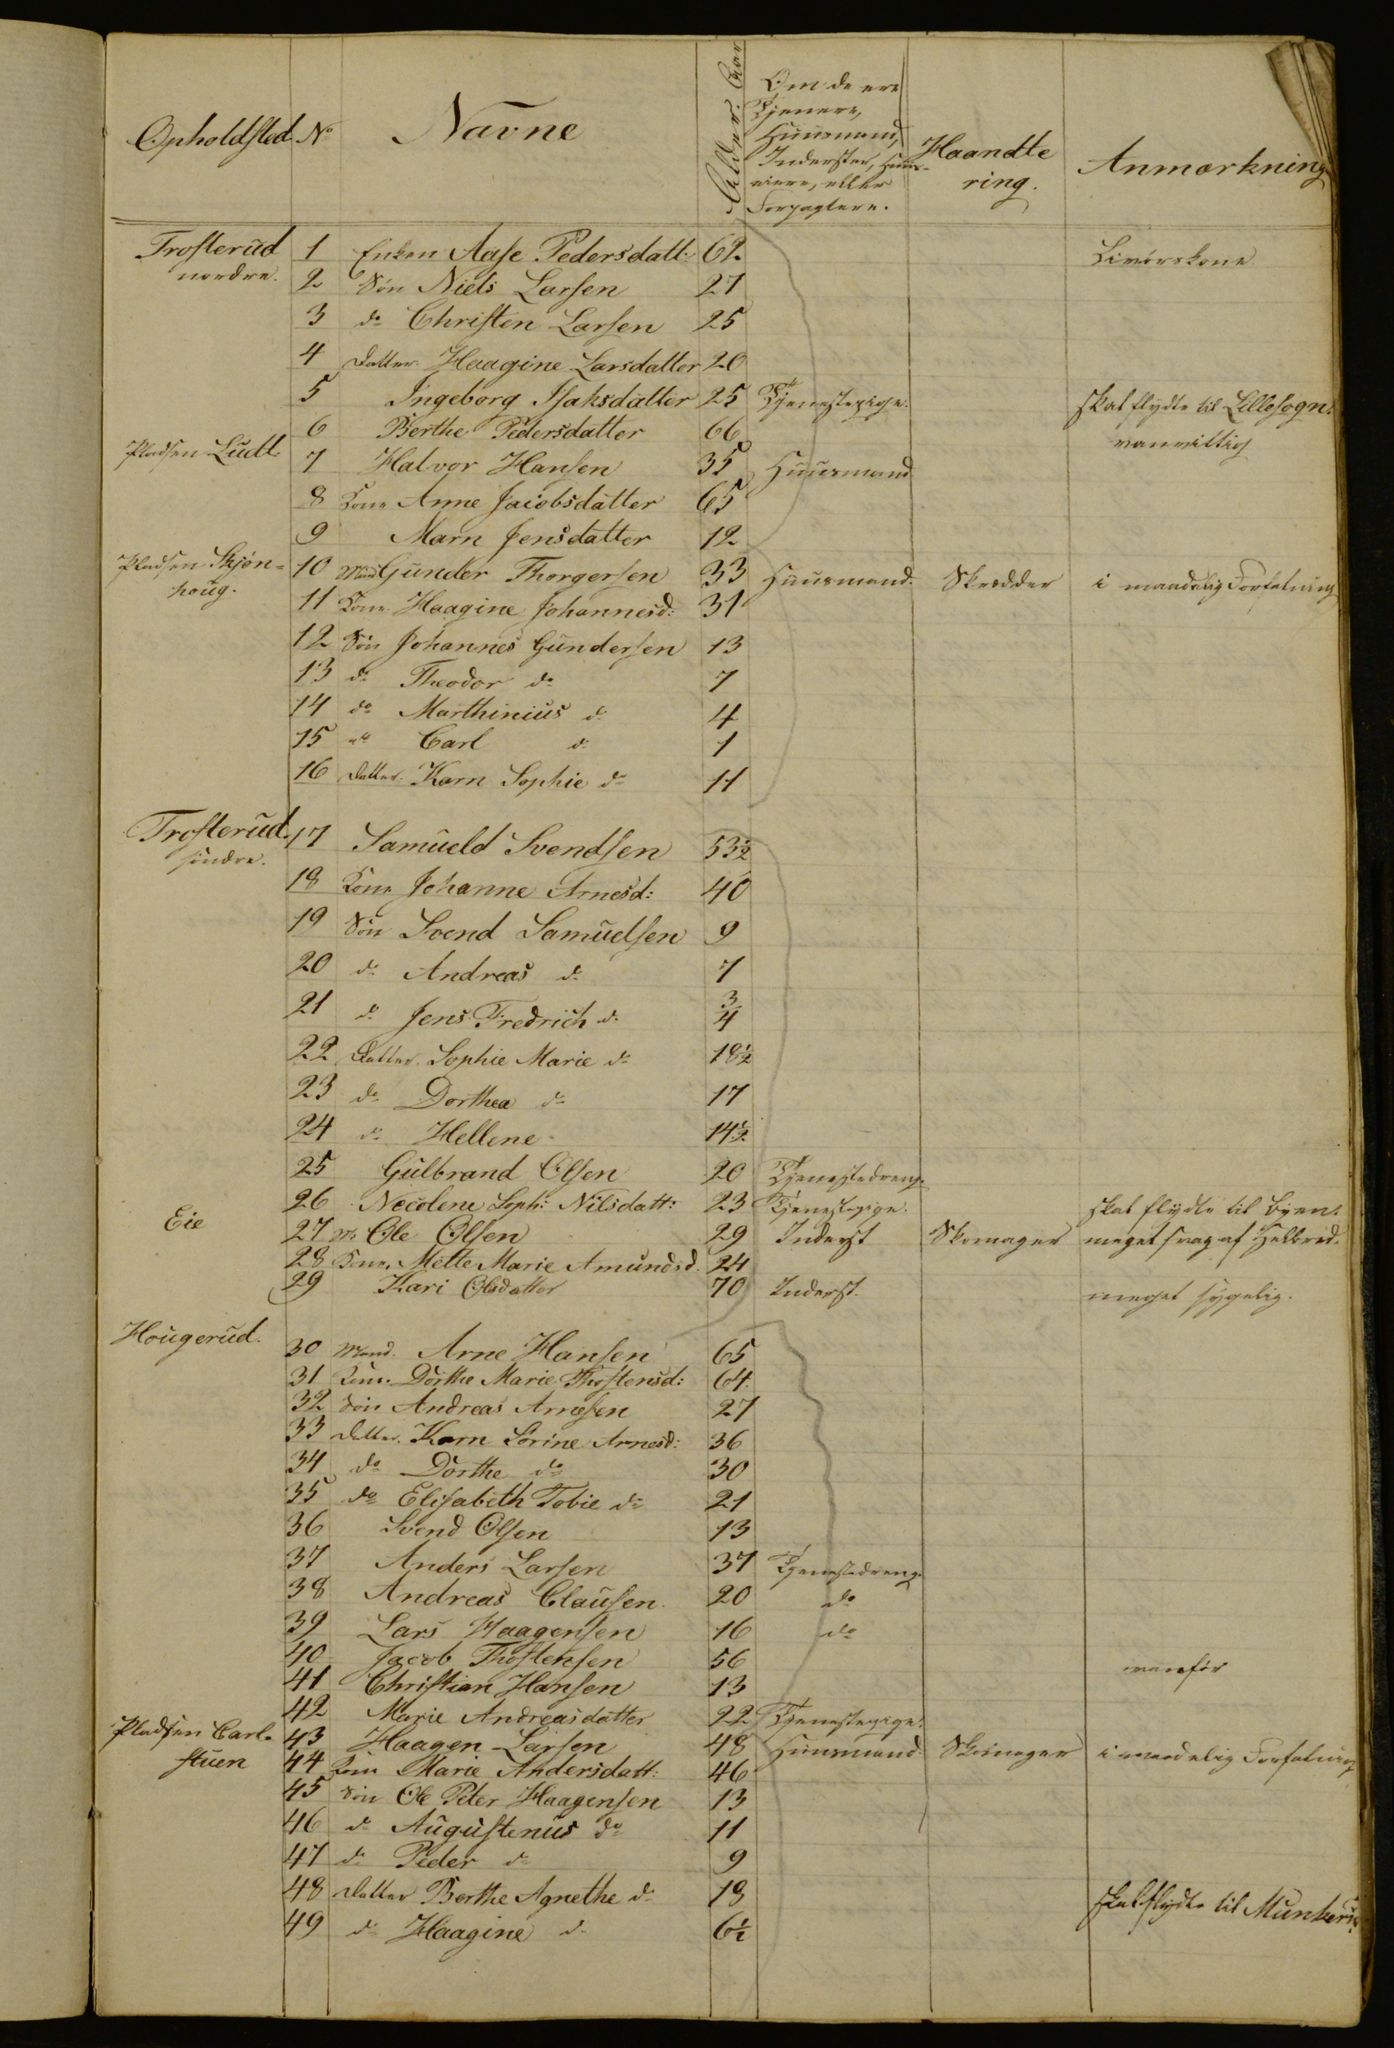 Opholdsted No Navne Alder. Aar Om de ere Haandte Anmærkning
Tjenere, ring.
Huusmænd,
Inderster, Huus-
eiere, eller
Forpagtere.
Trosterud 1 Enken Aase Pedersdatt: 62. Livörskone
nordre. 2 Sön Niels Larsen 27
3 do Christen Larsen 25
4 Datter Haagine Larsdatter 20
5 Ingeborg Isaksdatter 25 Tjenestepige. skal flydte til Lillesogn.
6 Berthe Pedersdatter 66 vanvittig
Pladsen 7 Halvor Hansen 35 Huusmand
8 Kone Anne Jacobsdatter 65
9 Marn Jensdatter 12
Pladsen Skjön= 10 Mand Gunder Thorgersen 33 Huusmand. Skrædder i maadelig Forfatning
houg. 11 Kone Haagine Johannesd: 31
12 Sön Johannes Gundersen 13
13 do Theodor do 7
14 do Marthinius do 4
15 do Carl do 1
16 Datter. Karn Sophie do 11
Trosterud. 17 Samueld Svendsen 53½
söndre. 18 Kone Johanne Arnesd: 40
19 Sön Svend Samuelsen 9
20 do Andreas do 7
21 do Jens Fredrich do 3/4
22 Datter. Sophie Marie do 18½
23 do Dorthea do 17
24 do Hellene 14½
25 Gulbrand Olsen 20 Tjenestedreng.
26 Necolene Soph: Nilsdatt: 23 Tjenestepige. skal flydte til Byen.
Eie 27 M. Ole Olsen 29 Inderst Skomager meget svag af Helbred.
28 Kone. Mette Marie Amundsd. 24
29 Kari Olsdatter 70 Inderst. meget sygelig.
Hougerud. 30 Mand. Arne Hansen 65
31 Kone. Dorthe Marie Thostensd: 64.
32 Sön Andreas Arnesen 27
33 Datter. Karn Sörine Arnesd: 36
34 do Dorthe do 30
35 do Elisabeth Tobie do 21
36 Svend Olsen 13
37 Anders Larsen 37 Tjenestedreng.
38 Andreas Clausen. 20 do
39 Lars Haagensen 16 do
40 Jacob Thostensen 56 vanför
41 Christian Hansen 13
42 Marie Andreasdatter 22 Tjenestepige.
Pladsen Carl= 43 Haagen Larsen 48 Huusmand Skomager i maadelig Forfatning
stuen 44 Kone Marie Andersdatt: 46
45 Sön Ole Peter Haagensen 13
46 do Augustenus do 11
47 do Peder do 9
48 Datter Berthe Agnethe do 18 skal flydte til
49 do Haagine do 6½